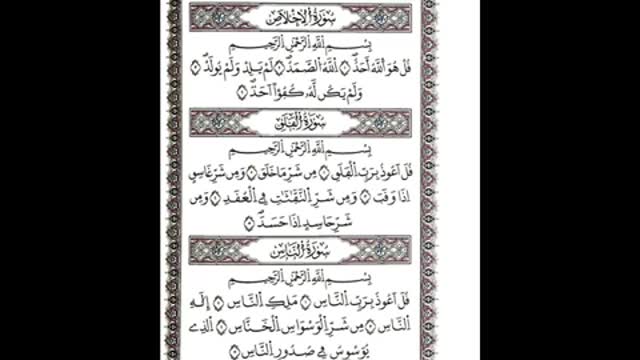 سُورَةُ الْإِخْلَاصِ
بِسْمِ اللَّهِ الرَّحْمَٰنِ الرَّحِيمِ
قُلْ هُوَ اللَّهُ أَحَدٌ ۝ اللَّهُ الصَّمَدُ ۝ لَمْ يَلِدْ وَلَمْ يُولَدْ ۝
وَلَمْ يَكُن لَّهُ كُفُوًا أَحَدٌ ۝
سُورَةُ الْفَلَقِ
بِسْمِ اللَّهِ الرَّحْمَٰنِ الرَّحِيمِ
قُلْ أَعُوذُ بِرَبِّ الْفَلَقِ ۝ مِن شَرِّ مَا خَلَقَ ۝ وَمِن شَرِّ غَاسِقٍ
إِذَا وَقَبَ ۝ وَمِن شَرِّ النَّفَّٰثَٰتِ فِي الْعُقَدِ ۝ وَمِن
شَرِّ حَاسِدٍ إِذَا حَسَدَ ۝
سُورَةُ النَّاسِ
بِسْمِ اللَّهِ الرَّحْمَٰنِ الرَّحِيمِ
قُلْ أَعُوذُ بِرَبِّ النَّاسِ ۝ مَلِكِ النَّاسِ ۝ إِلَٰهِ
النَّاسِ ۝ مِن شَرِّ الْوَسْوَاسِ الْخَنَّاسِ ۝ الَّذِي
يُوَسْوِسُ فِي صُدُورِ النَّاسِ ۝